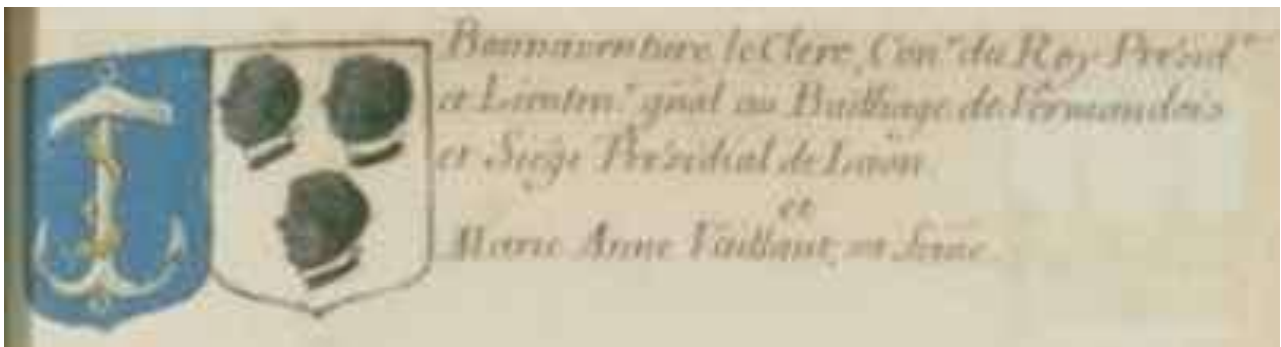 Bonnaventure le Clerc, Con.er du Roy Présid.t
et Lieuten.t gñal au Bailliage de Vermandois
et Siége Présidial de Laon.
et
Marie Anne Vaillant, sa feme.